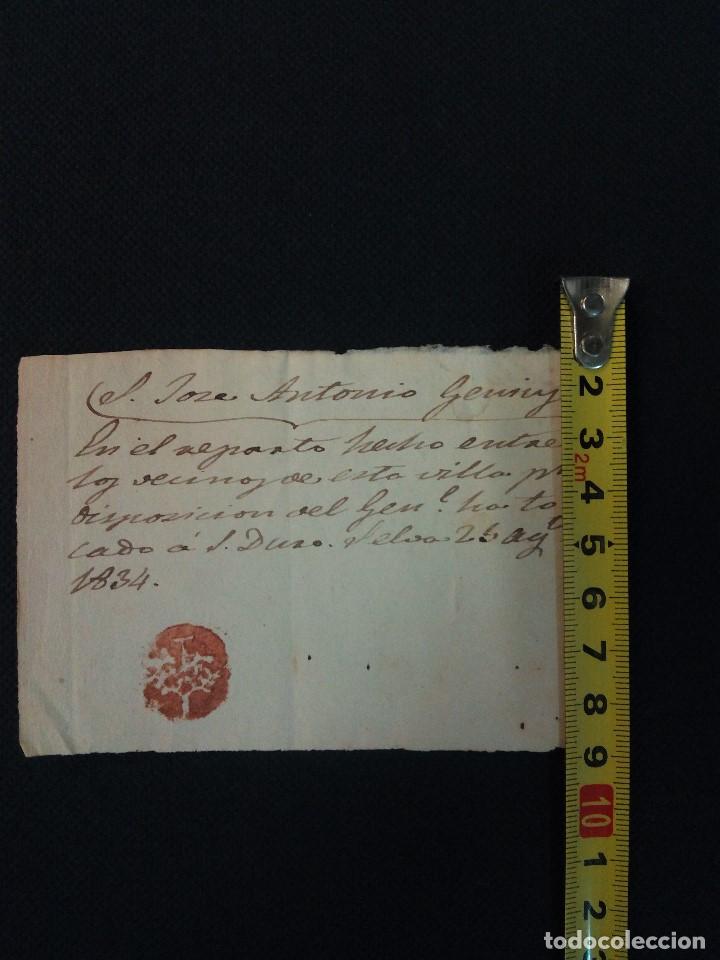 S. Jose Antonio
En el reparto hecho entre
los vecinos de esta villa pr
disposicion del Genl. ha to
cado á 1. Duro. Selva 25 agt
1834.
2
3
2m
4
5
6
7
8
9
10
1
2
todocoleccion